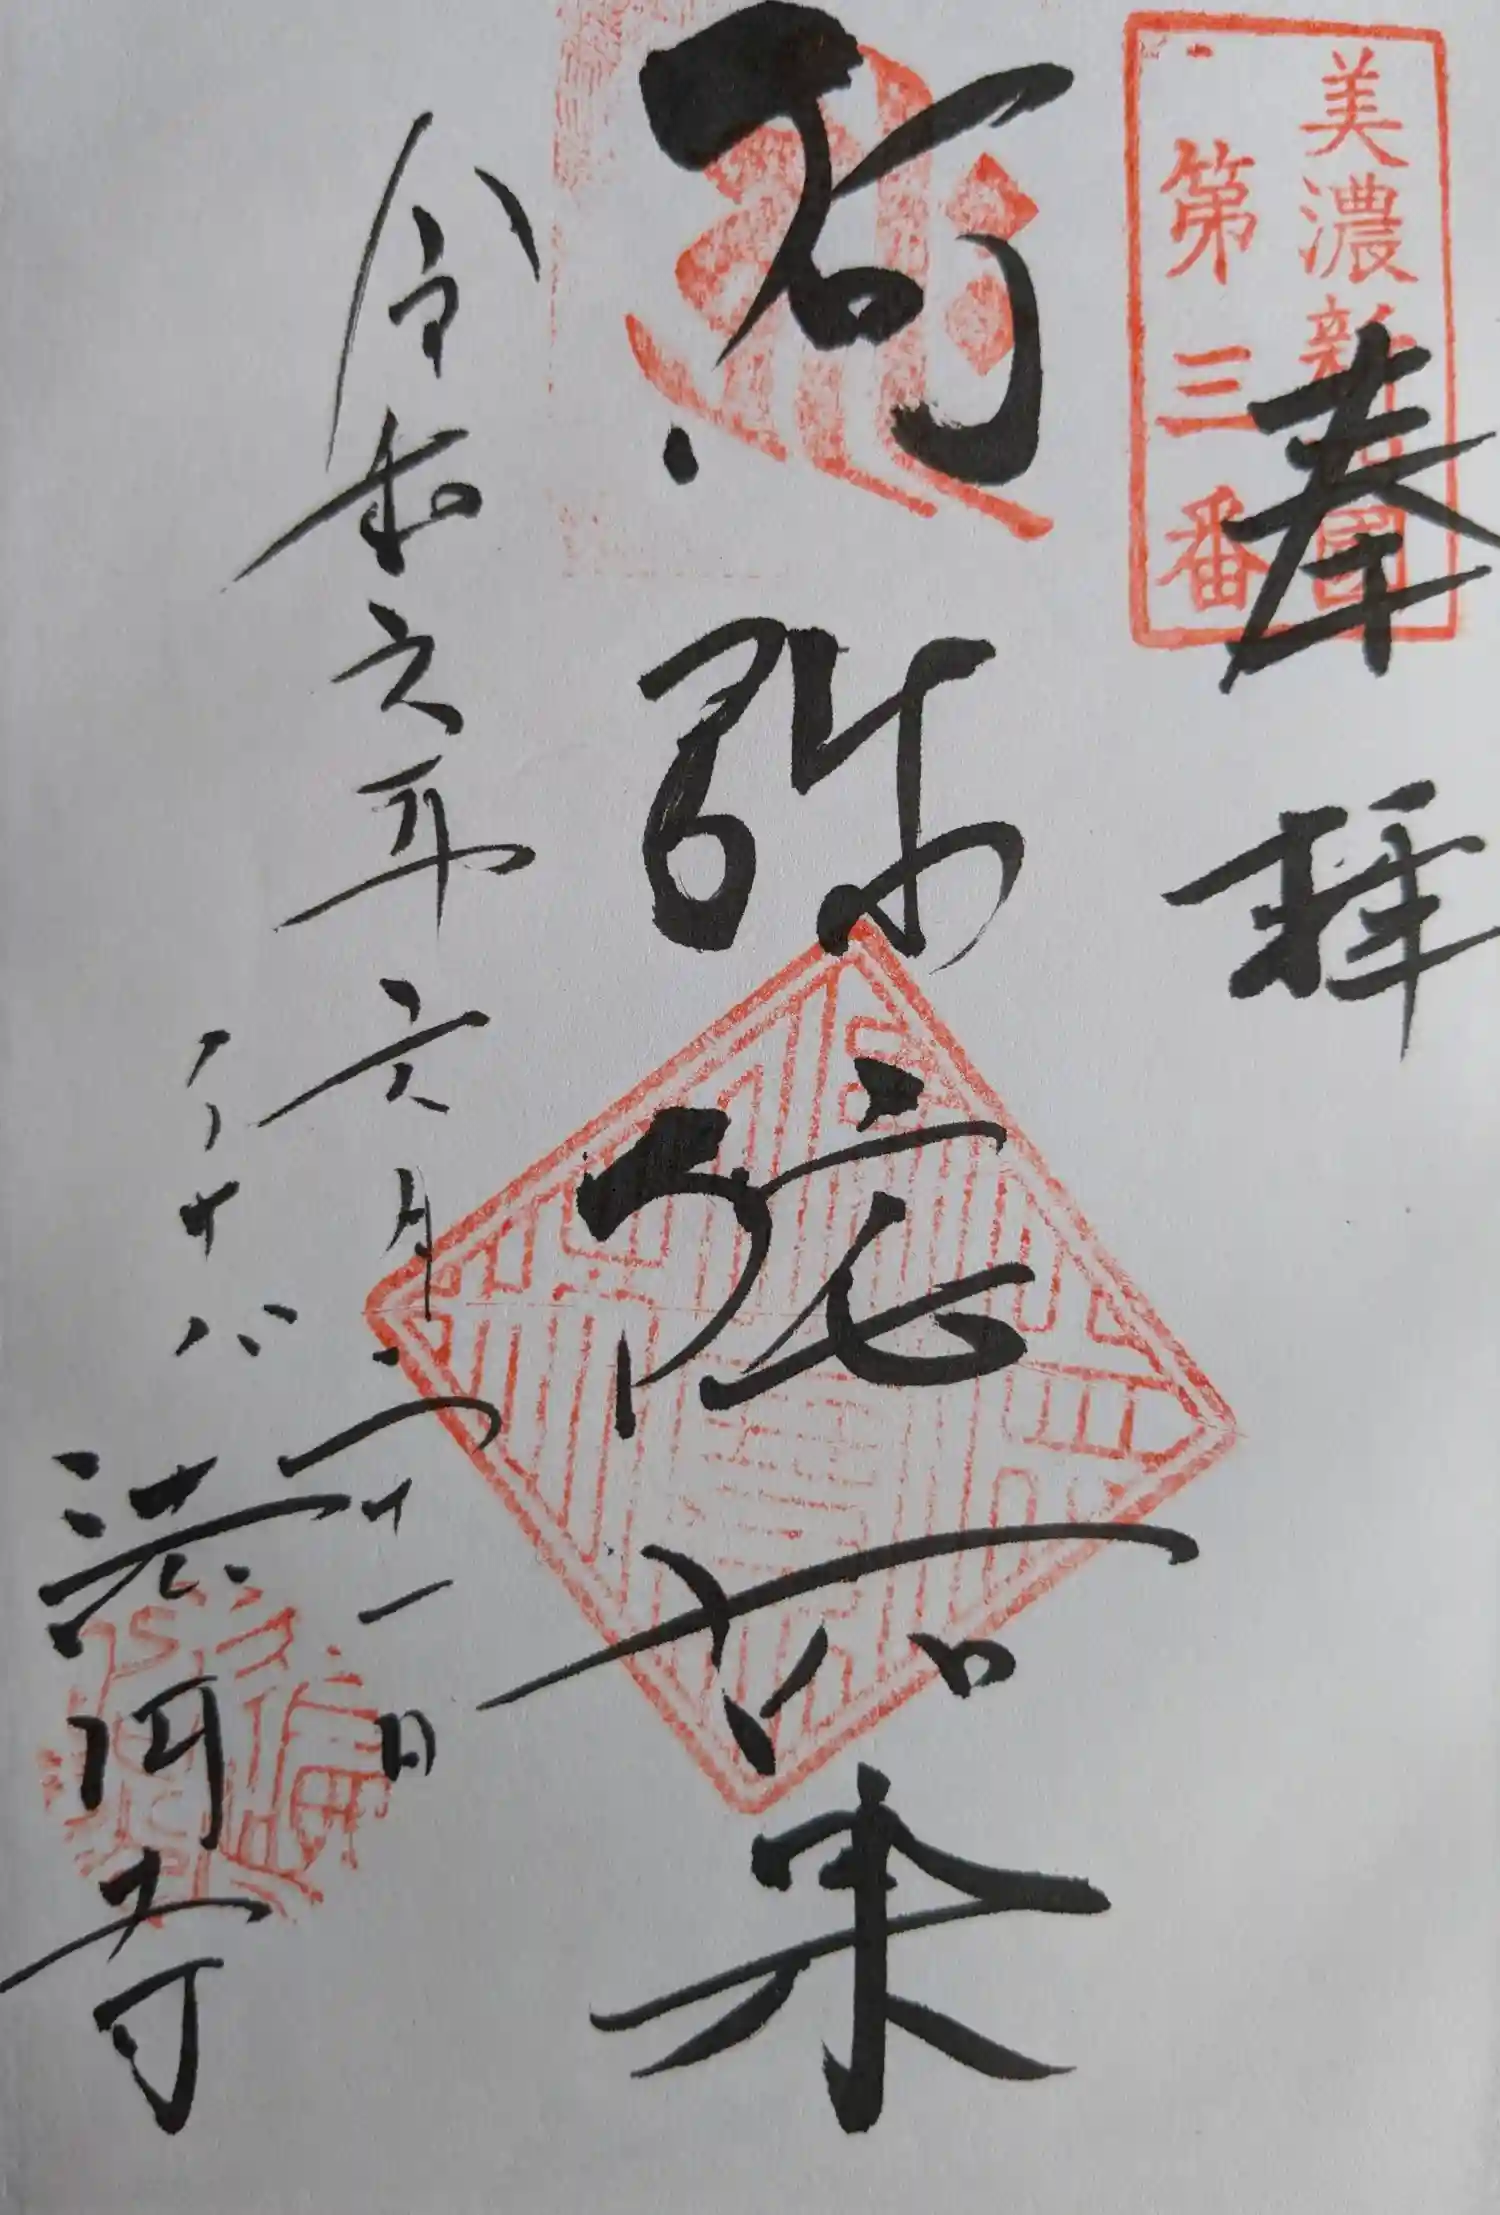 美濃新四国
第三番
奉拝
阿弥陀如来
令和六年六月二十一日
法円寺